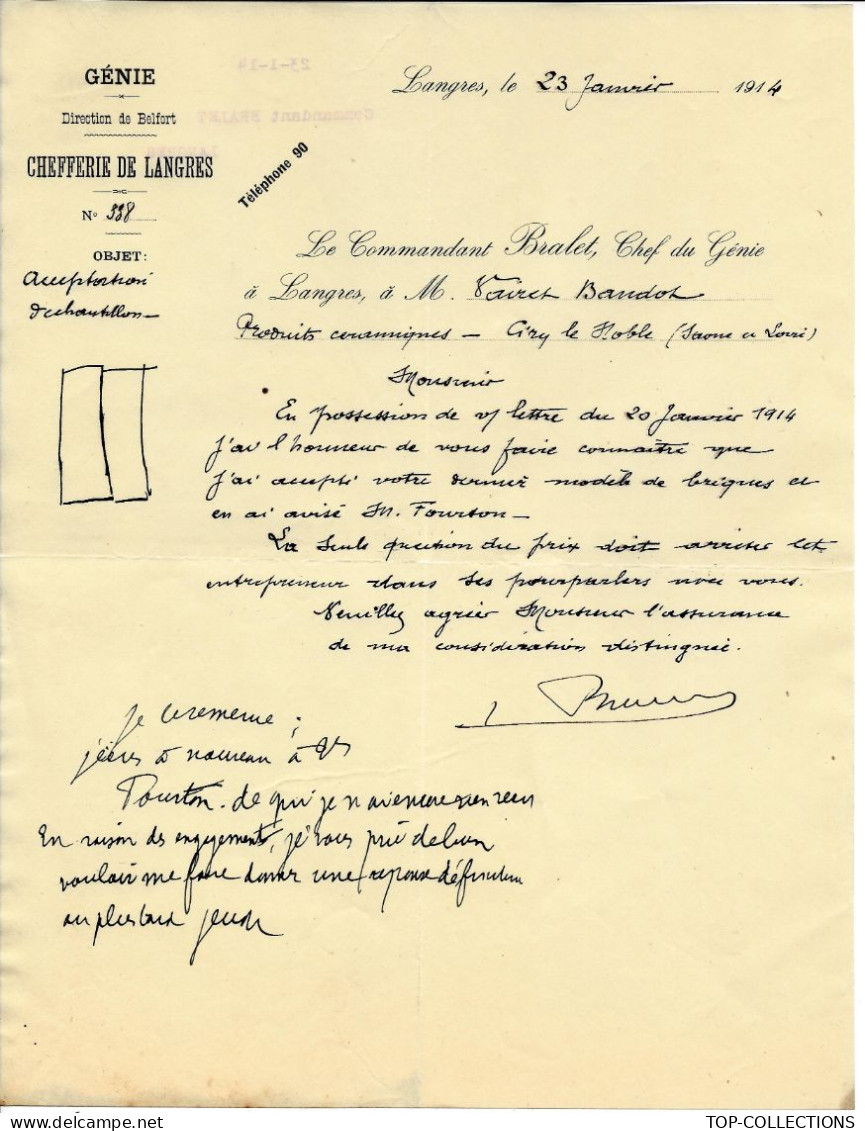 GÉNIE
Direction de Belfort
CHEFFERIE DE LANGRES
N° 338
OBJET:
Acceptation
d'echantillon
Téléphone 90
23-1-14
Commandant BRALET
LANGRES
Langres, le 23 Janvier 1914
Le Commandant Bralet, Chef du Génie
à Langres, à M. Vairet Baudot
Produits ceramiques - Ciry le Noble (Saone et Loire)
Monsieur
En possession de v/ lettre du 20 Janvier 1914
j'ai l'honneur de vous faire connaître que
j'ai accepté votre dernier modèle de briques et
en ai avisé M. Tourton -
La seule question du prix doit arrêter cet
entrepreneur dans ses pourparlers avec vous.
Veuillez agréer Monsieur l'assurance
de ma considération distinguée.
je
à nouveau à
Tourton de qui je n'ai encore rien reçu
En raison des engagements, je vous prie de bien
vouloir me faire donner une reponse définitive
au plus tard jeudi
TOP-COLLECTIONS